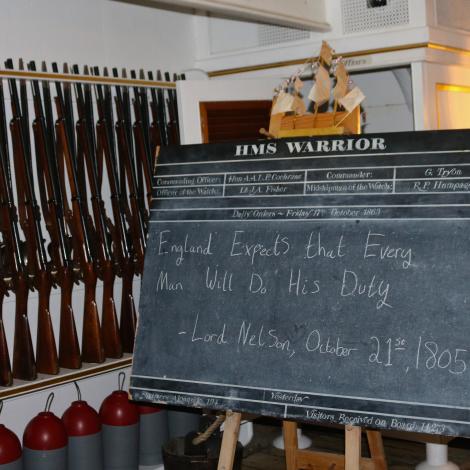 HMS WARRIOR
Commanding Officer: Hon A.A.L.P. Cochrane Commander: G. Tryon
Officer of the Watch: Lt. J.A. Fisher Midshipman of the Watch: R.P. Humpage
Daily Orders ~ Friday October 1863
England Expects that Every
Man Will Do His Duty
- Lord Nelson, October 21st, 1805
Yesterday
Visitors Received on Board